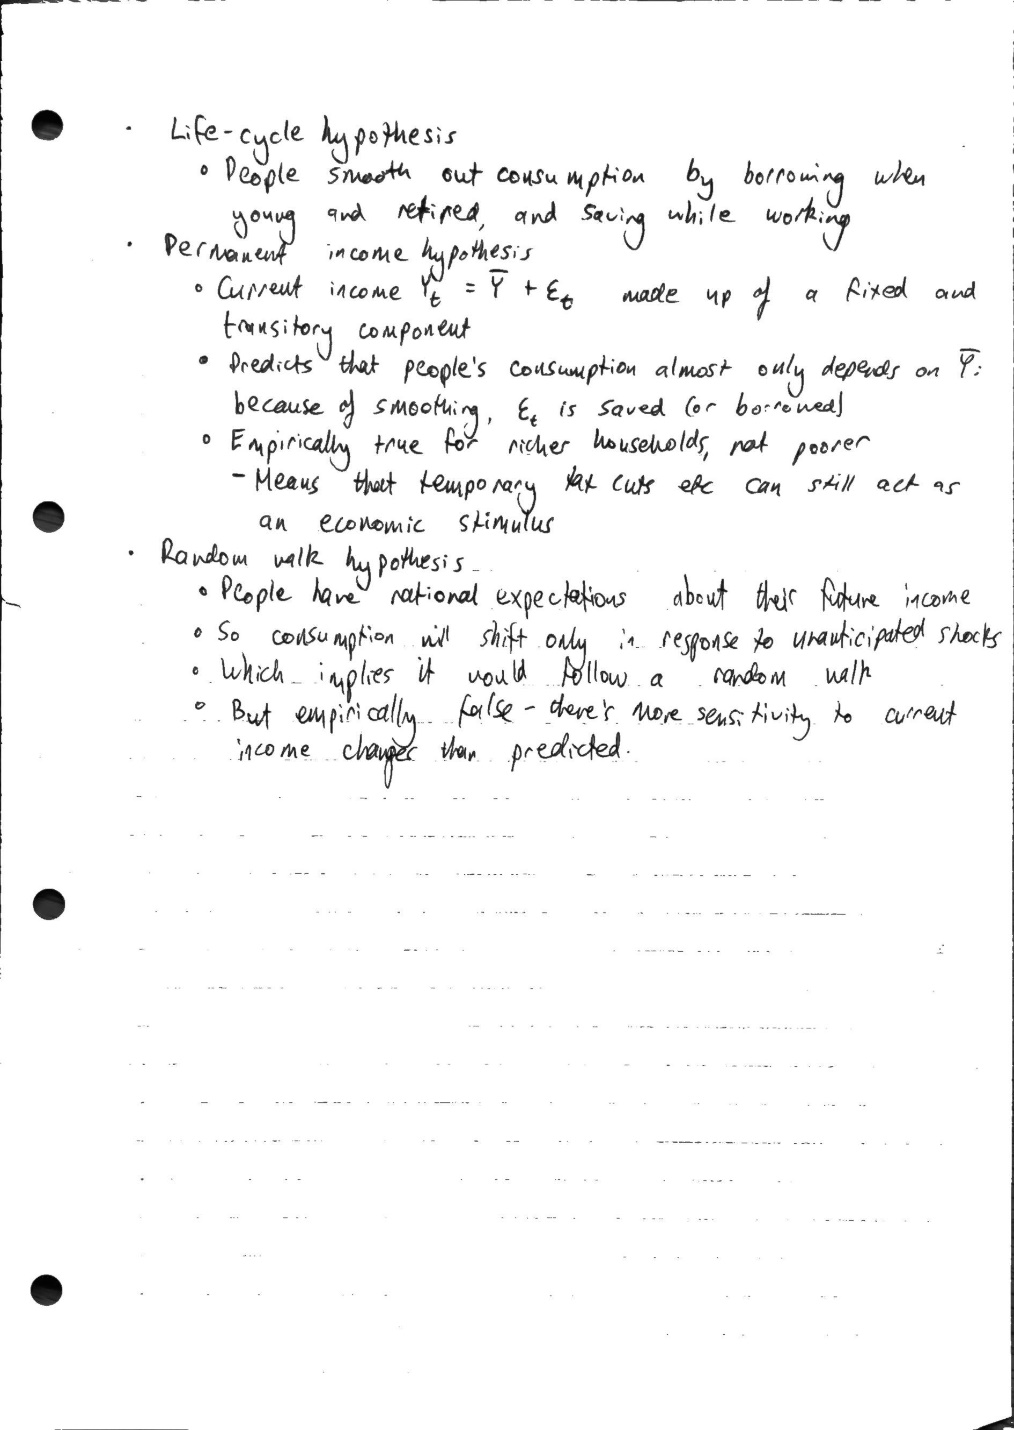 · Life-cycle hypothesis
∘ People smooth out consumption by borrowing when
young and retired, and saving while working
· Permanent income hypothesis
∘ Current income Y̅ₜ = Y̅ + Ɛₜ made up of a fixed and
transitory component
∘ Predicts that people's consumption almost only depends on Y̅:
because of smoothing, Ɛₜ is saved (or borrowed)
∘ Empirically true for richer households, not poorer
– Means that temporary tax cuts etc can still act as
an economic stimulus
· Random walk hypothesis
∘ People have rational expectations about their future income
∘ So consumption will shift only in response to unanticipated shocks
∘ Which implies it would follow a random walk
∘ But empirically false – there's more sensitivity to current
income changes than predicted.